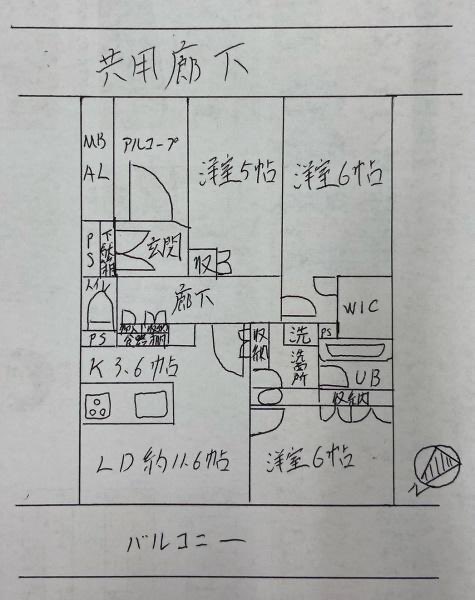 共用廊下
MB
AL
アルコーブ
洋室5帖
洋室6帖
PS
下駄箱
玄関
収
トイレ
廊下
WIC
PS
物入
収納
食器棚
収納
洗
洗面所
PS
K 3.6帖
UB
収納
LD 約11.6帖
洋室6帖
バルコニー
N